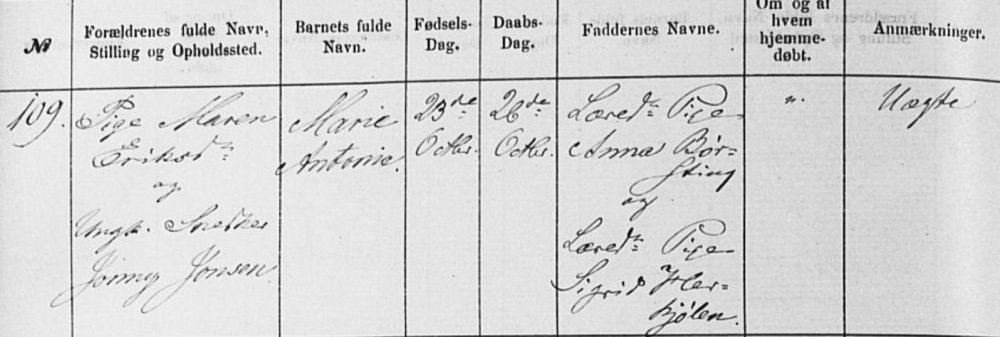 №
Forældrenes fulde Navn,
Stilling og Opholdssted.
Barnets fulde
Navn.
Fødsels-
Dag.
Daabs-
Dag.
Faddernes Navne.
Om og af
hvem
hjemme-
døbt.
Anmærkninger.
109.
Pige Maren
Eriksdr
og
Ungk. Snedker
Jonsen
Marie
Antonie
23de
Octbr.
26de
Octbr.
Pige
Anna Bør-
sting
og
Pige
Sigrid
Bjølen.
".
Uægte